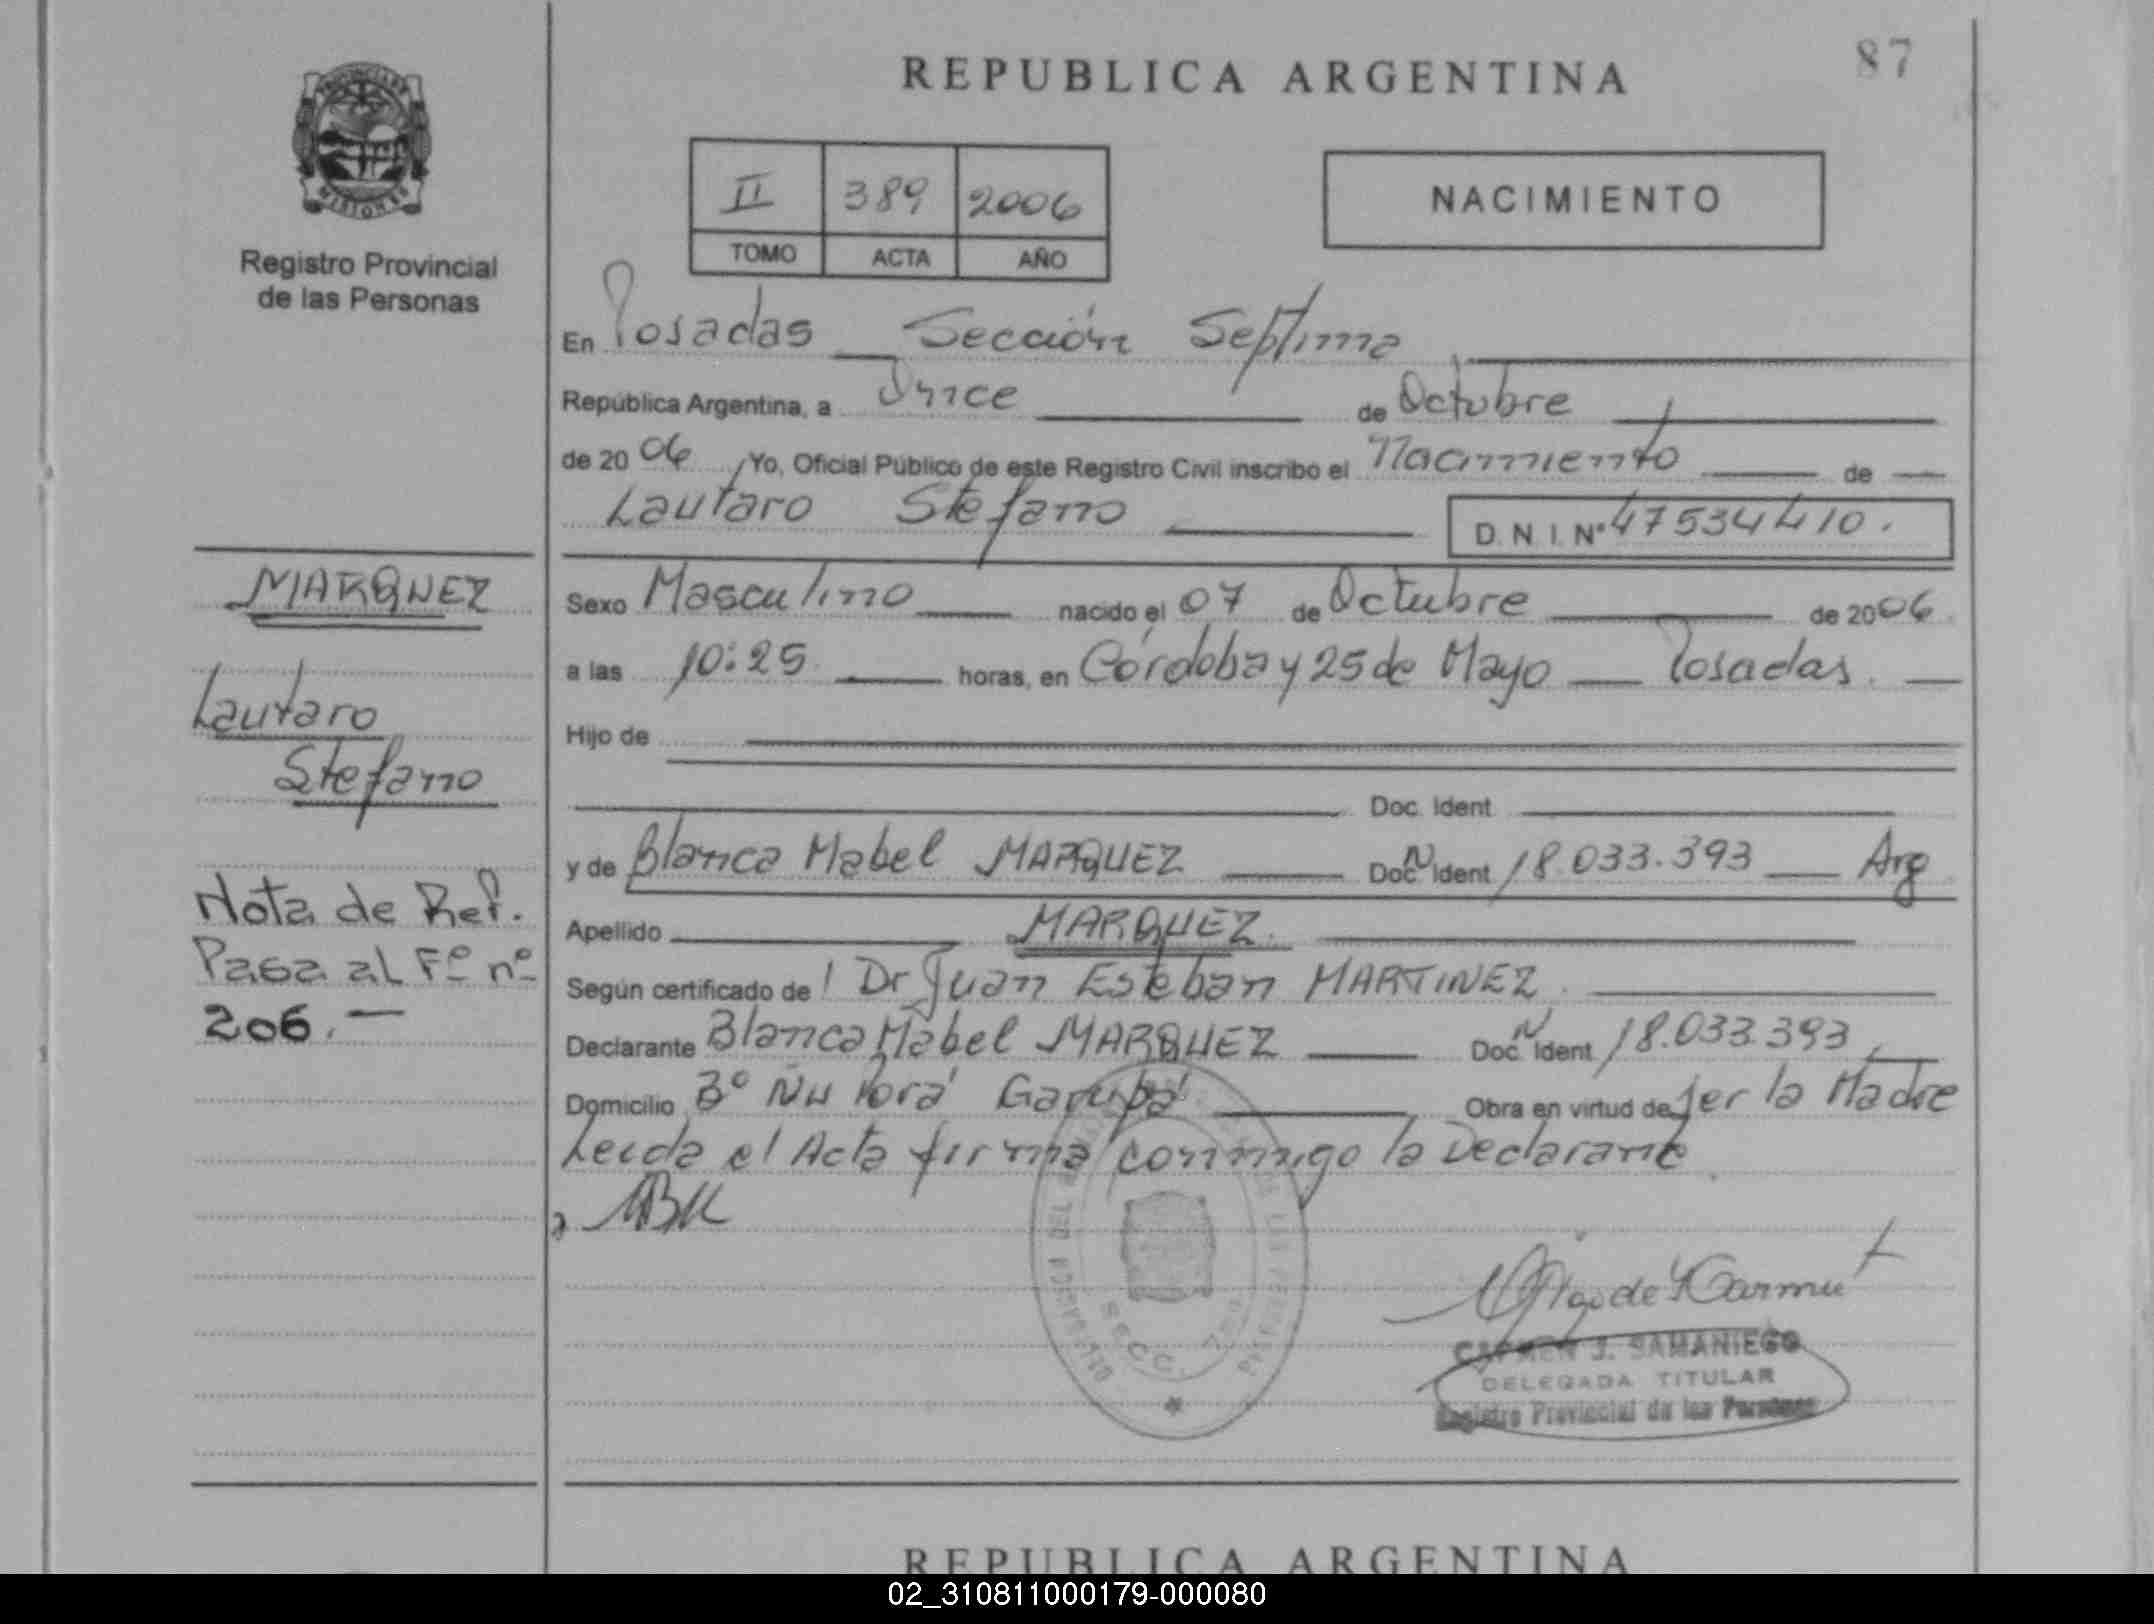 REPUBLICA ARGENTINA
87
PROVINCIA DE
MISIONES
Registro Provincial
de las Personas
II 389 2006
TOMO ACTA AÑO
NACIMIENTO
En Posadas Sección Septima
República Argentina, a Once de Octubre
de 2006 , Yo, Oficial Público de este Registro Civil inscribo el Nacimiento de
Lautaro Stefano D. N. I. Nº 47534410.
MARQUEZ
Lautaro
Stefano
Nota de Ref.
Pasa al Fº nº
206.-
Sexo Masculino nacido el 07 de Octubre de 2006
a las 10:25 horas, en Córdoba y 25 de Mayo Posadas.
Hijo de
Doc. Ident.
y de Blanca Mabel MARQUEZ Doc. N Ident. 18.033.393 Arg
Apellido MARQUEZ.
Según certificado de Dr Juan Esteban MARTINEZ.
Declarante Blanca Mabel MARQUEZ Doc. N Ident. 18.033.393
Domicilio Bº Ñu Porá Garupá Obra en virtud de ser la Madre
Leida el Acta firma conmigo la Declarante
SECC. 7
CARMEN J. SAMANIEGO
DELEGADA TITULAR
Registro Provincial de las Personas
REPUBLICA ARGENTINA
02_310811000179-000080